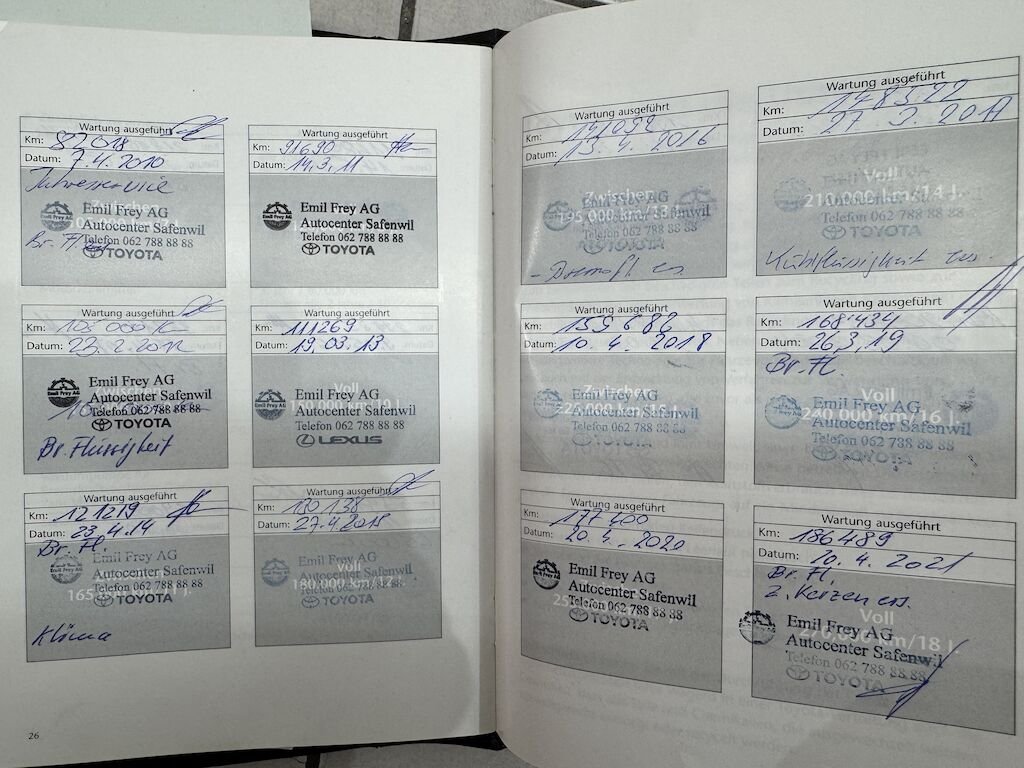 Wartung ausgeführt
Km: 82018
Datum: 7.4.2010
Jahresservice
Emil Frey AG
Autocenter Safenwil
Telefon 062 788 88 88
Br. Fl.
TOYOTA
Wartung ausgeführt
Km: 91690
Datum: 14.3.11
Emil Frey AG
Autocenter Safenwil
Telefon 062 788 88 88
TOYOTA
Wartung ausgeführt
Km: 105000 K
Datum: 23.2.2012
Zwischen
Emil Frey AG
Autocenter Safenwil
Telefon 062 788 88 88
TOYOTA
Br. Flüssigkeit
Wartung ausgeführt
Km: 111269
Datum: 19.03.13
Voll
150 000 km/10 J.
Emil Frey AG
Autocenter Safenwil
Telefon 062 788 88 88
LEXUS
Wartung ausgeführt
Km: 121219
Datum: 23.4.14
Br. Fl.
Emil Frey AG
Autocenter Safenwil
Telefon 062 788 88 88
165
TOYOTA
Klima
Wartung ausgeführt
Km: 130138
Datum: 27.4.2015
Voll
Emil Frey AG
180 000 km/12 J.
Autocenter Safenwil
Telefon 062 788 88 88
TOYOTA
26
Wartung ausgeführt
Km: 141092
Datum: 13.4.2016
Zwischen
195 000 km/13 J.
Emil Frey AG
Autocenter Safenwil
Telefon 062 788 88 88
TOYOTA
Wartung ausgeführt
Km: 148522
Datum: 27.3.2017
Voll
210 000 km/14 J.
Autocenter Safenwil
Telefon 062 788 88 88
TOYOTA
Kühlflüssigkeit ers.
Wartung ausgeführt
Km: 155682
Datum: 10.4.2018
Zwischen
Emil Frey AG
225 000 km/15 J.
Autocenter Safenwil
Telefon 062 788 88 88
TOYOTA
Wartung ausgeführt
Km: 168'434
Datum: 26.3.19
Br. Fl.
Voll
Emil Frey AG
240 000 km/16 J.
Autocenter Safenwil
Telefon 062 788 88 88
TOYOTA
Wartung ausgeführt
Km: 177400
Datum: 20.4.2020
Emil Frey AG
Autocenter Safenwil
Telefon 062 788 88 88
TOYOTA
Wartung ausgeführt
Km: 186489
Datum: 10.4.2021
Br. Fl.
Z. Kerzen ers.
Voll
Emil Frey AG
270 000 km/18 J.
Autocenter Safenwil
Telefon 062 788 88 88
TOYOTA